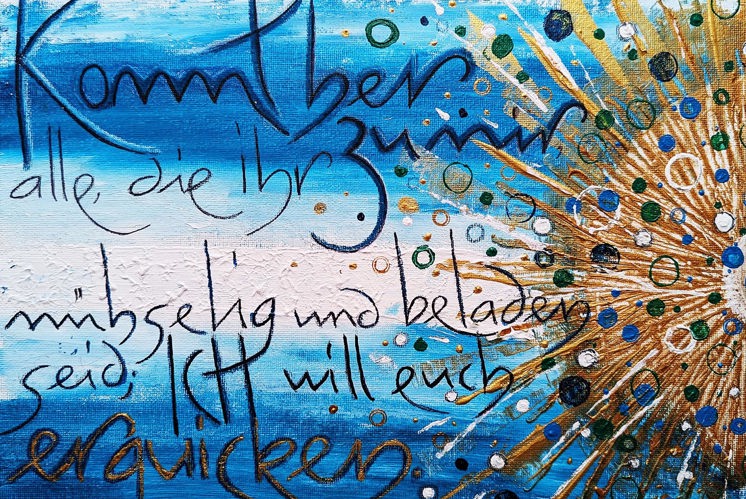 Kommt her
zu mir
alle, die ihr
mühselig und beladen
seid; ICH will euch
erquicken.